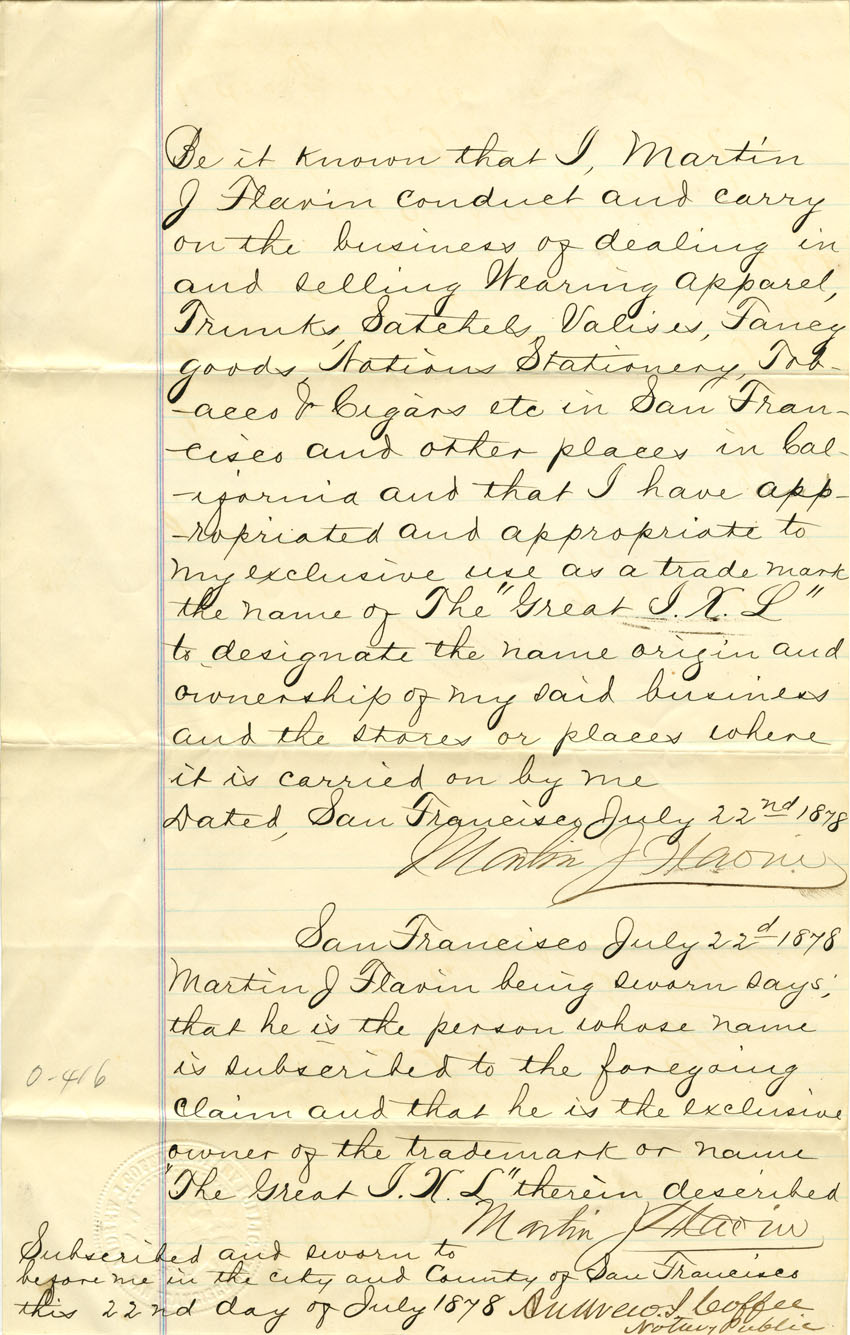 Be it known that I, Martin
J Flavin conduct and carry
on the business of dealing in
and selling Wearing apparel,
Trunks, Satchels, Valises, Fancy
goods, Notions Stationery, Tob-
-acco & Cigars etc in San Fran-
-cisco and other places in Cal-
-ifornia and that I have app-
-ropriated and appropriate to
my exclusive use as a trade mark
the name of The "Great I. X. L"
to designate the name origin and
ownership of my said business
and the stores or places where
it is carried on by me
Dated, San Francisco July 22nd 1878
Martin J Flavin
San Francisco July 22d 1878
Martin J Flavin being sworn says;
that he is the person whose name
is subscribed to the foregoing
claim and that he is the exclusive
owner of the trademark or name
"The Great I. X. L" therein described
Martin J Flavin
0-416
Subscribed and sworn to
before me in the city and County of San Francisco
this 22nd day of July 1878 Andrew J Coffee
Notary Public